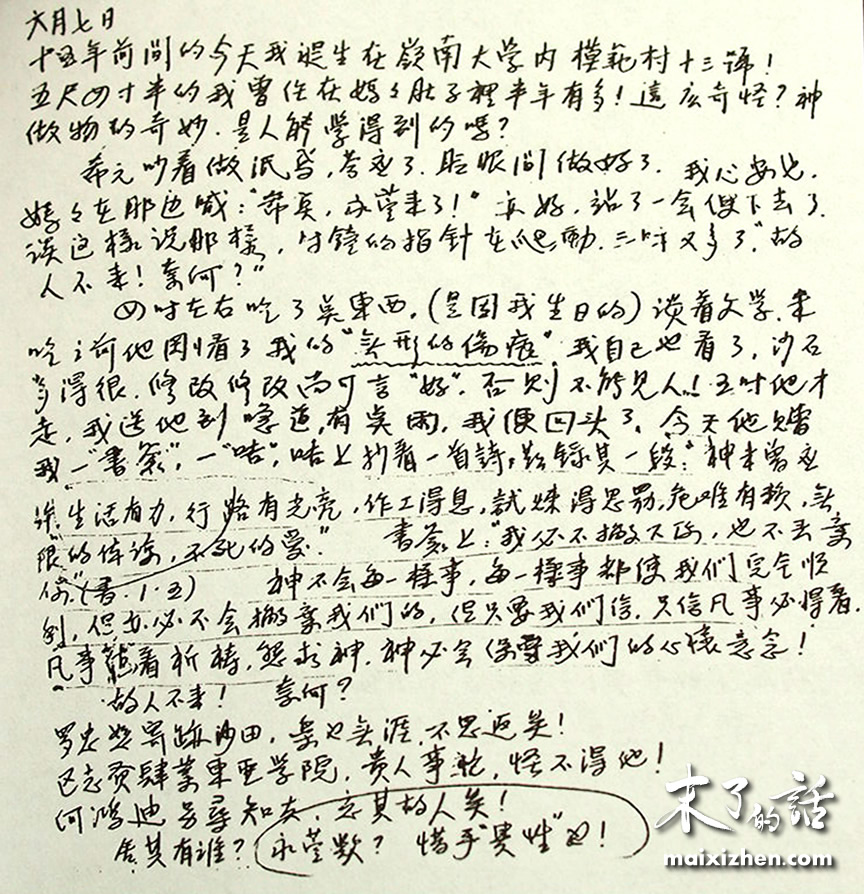 六月七日
十五年前間的今天我誕生在嶺南大学内模範村十三號！
五尺四寸半的我曾住在媽々肚子裡半年有多！這么奇怪？神
做物的奇妙．是人能学得到的嗎？
希元吵着做泥 ，答应了．眨眼間做好了．我心安也．
媽々在那边喊："希真，永莹来了！"真好，站了一会便下去了．
谈这樣说那樣，时鐘的指針在爬動．三时又多了．"故
人不来！奈何？"
四时左右吃了吴東西．(是因我生日的)谈着文学．未
吃之前他刚看了我的"無形的傷痕"．我自己也看了，沙石
多得很．修改修改尚可言"好"．否則不能见人！五时他才
走，我送他到 道，有吴雨，我便回头了．今天他只曾
我一"書签"，一"咭"，咭上抄着一首詩，兹錄其一段："神未曾应
许生活有力，行路有光亮，作工得息，試煉得恩 ，危难有赖，無
限的体谅，不死的爱．" 書签上："我必不撇下你，也不丢棄
你"(書·1·五) 神不会每一樣事，每一樣事都使我们完全順
利，但亦必不会撇棄我们的，但只要我们信．只信凡事必得着．
凡事藉着祈禱，懇求神．神必会保 我们的心懷意念！
故人不来！ 奈何？
罗忠 寄跡沙田，樂也無涯．不思返矣！
区志 肆業東亜学院，貴人事 ，怪不得他！
何鸿迪另尋知友，忘其故人矣！
舍其有谁？ 永莹歟？ 惜乎"異性"也！
末了的話
maixizhen.com